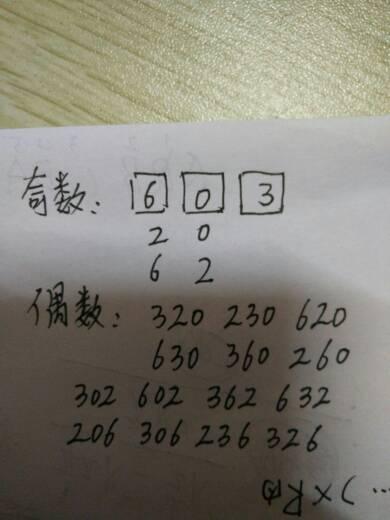 奇数: 6 0 3
2 0
6 2
偶数: 320 230 620
630 360 260
302 602 362 632
206 306 236 326